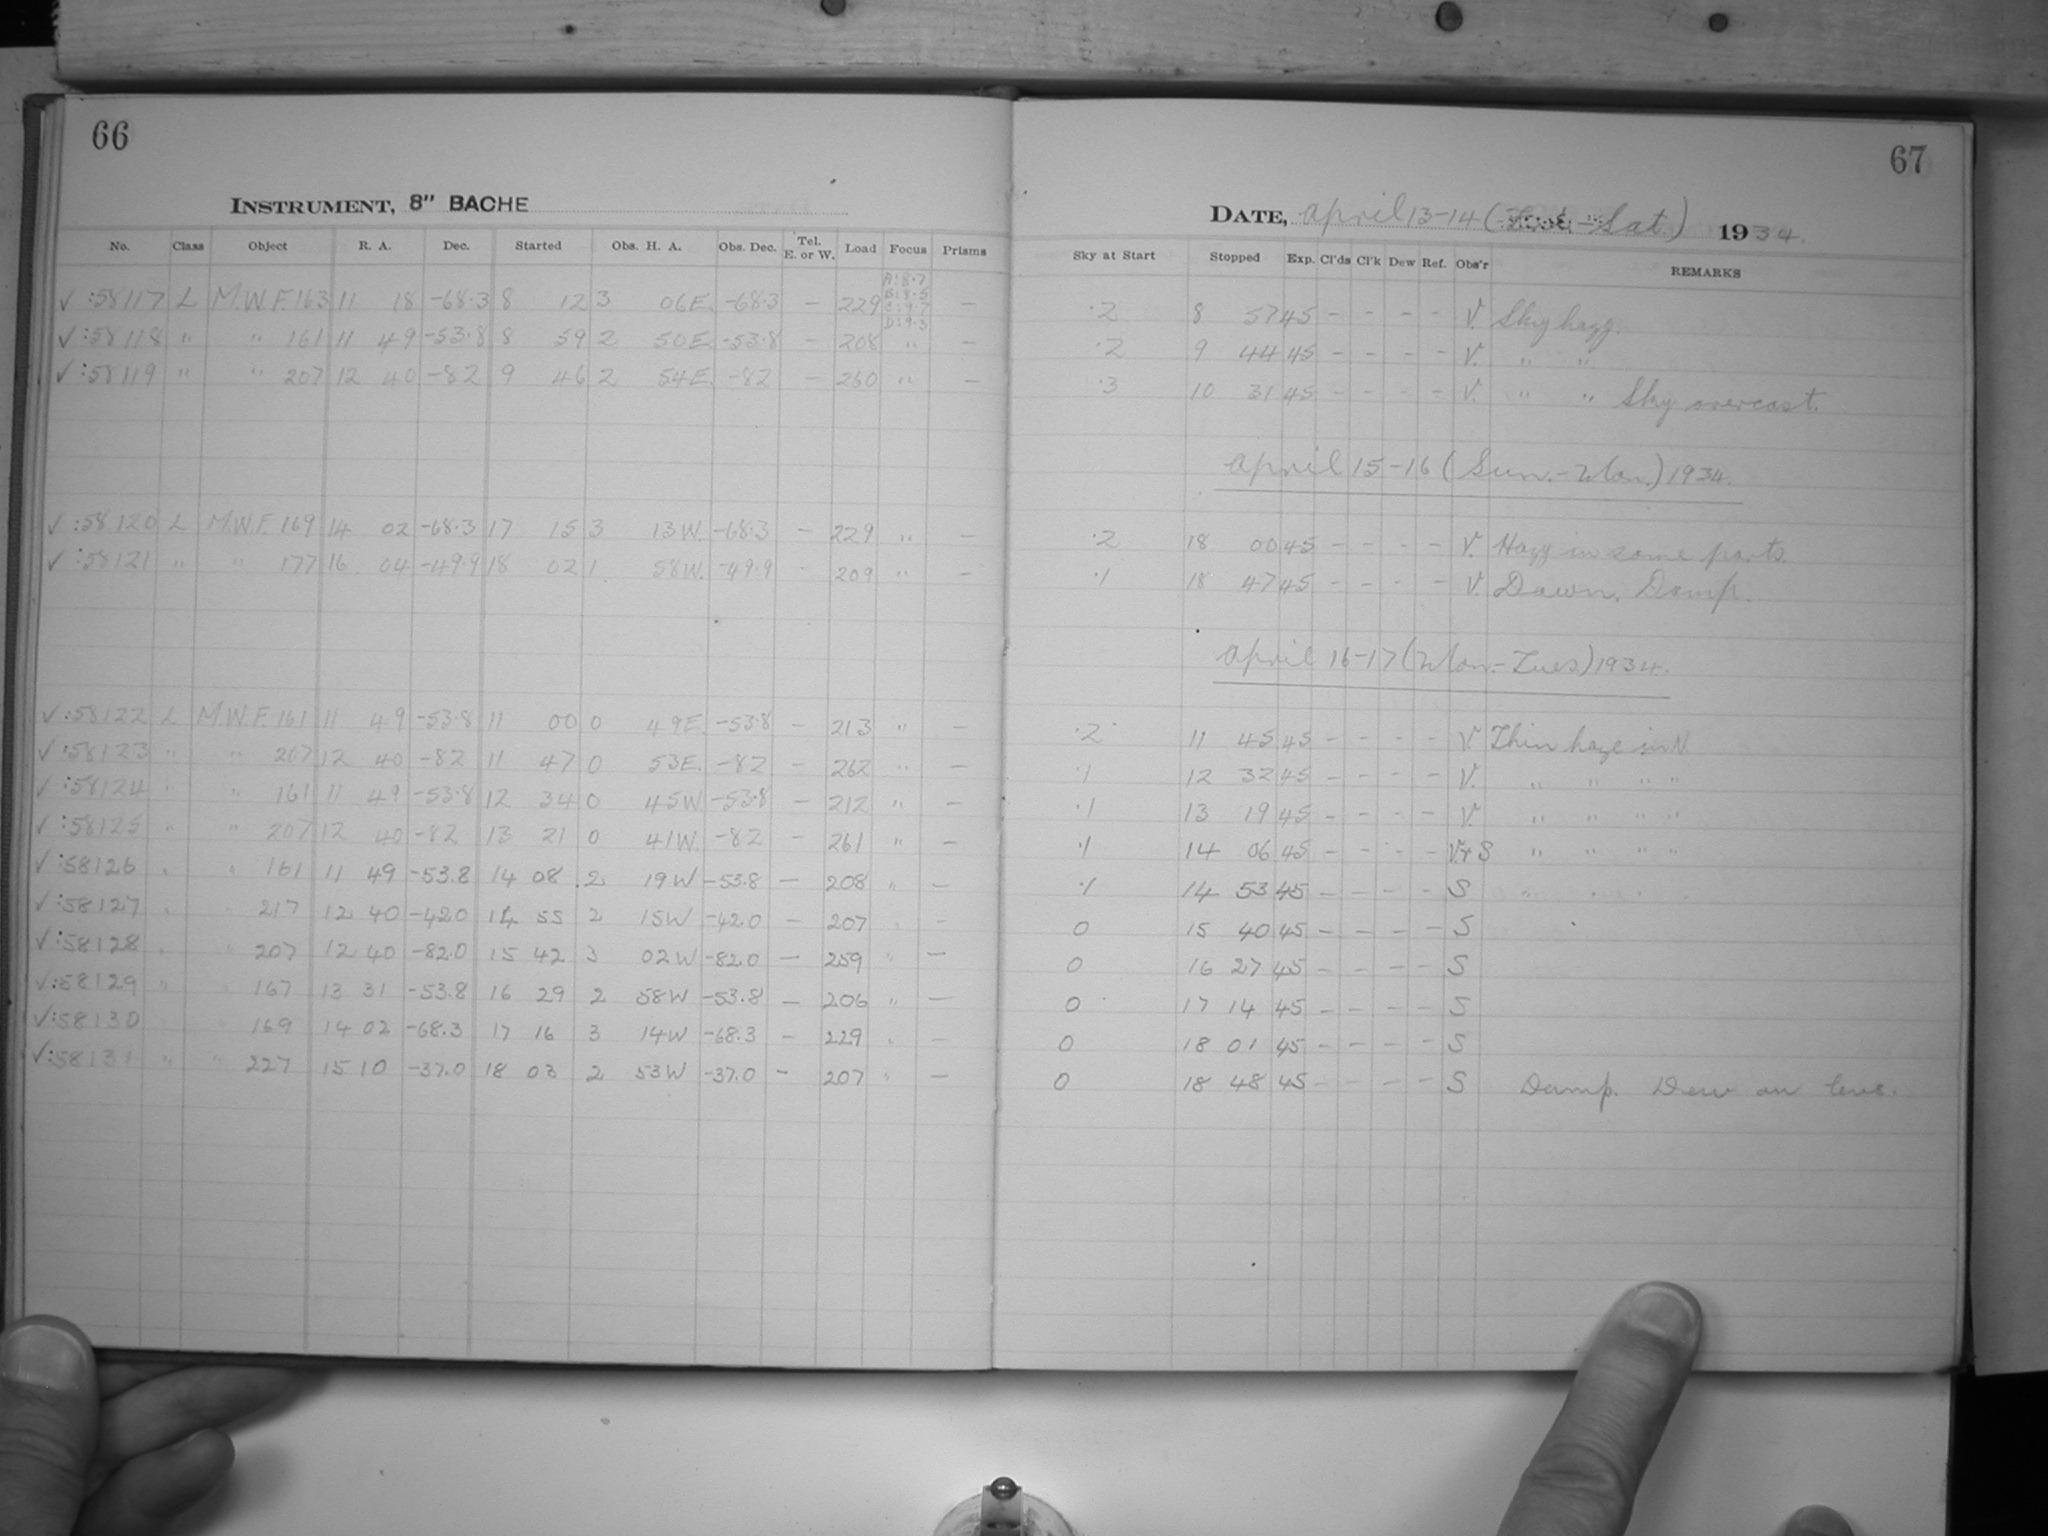 66
INSTRUMENT, 8" BACHE
No. Class Object R. A. Dec. Started Obs. H. A. Obs. Dec. Tel. E. or W. Load Focus Prisms
✓:58117 L M.W.F. 163 11 18 -68.3 8 12 3 06E. -68.3 - 229 A:8.7 B:8.5 C:9.7 D:9.3 -
✓:58118 " " 161 11 49 -53.8 8 59 2 50E. -53.8 - 208 " -
✓:58119 " " 207 12 40 -82 9 46 2 54E. -82 - 260 " -
✓:58120 L M.W.F. 169 14 02 -68.3 17 15 3 13W. -68.3 - 229 " -
✓:58121 " " 177 16 04 -49.9 18 02 1 58W. -49.9 - 209 " -
✓:58122 L M.W.F. 161 11 49 -53.8 11 00 0 49E. -53.8 - 213 " -
✓:58123 " " 207 12 40 -82 11 47 0 53E. -82 - 262 " -
✓:58124 " " 161 11 49 -53.8 12 34 0 45W -53.8 - 212 " -
✓:58125 " " 207 12 40 -82 13 21 0 41W. -82 - 261 " -
✓:58126 " " 161 11 49 -53.8 14 08 2 19W -53.8 - 208 " -
✓:58127 " " 217 12 40 -42.0 14 55 2 15W -42.0 - 207 " -
✓:58128 " " 207 12 40 -82.0 15 42 3 02W -82.0 - 259 " -
✓:58129 " " 167 13 31 -53.8 16 29 2 58W -53.8 - 206 " -
✓:58130 169 14 02 -68.3 17 16 3 14W -68.3 - 229 " -
✓:58131 " " 227 15 10 -37.0 18 03 2 53W -37.0 - 207 " -
67
DATE, April 13-14 (-Sat.) 1934.
Sky at Start Stopped Exp. Cl'ds Cl'k Dew Ref. Obs'r REMARKS
.2 8 57 45 - - - - V. Sky hazy.
.2 9 44 45 - - - - V. " "
.3 10 31 45 - - - - V. " " Sky overcast.
April 15-16 (Sun.-Mon.) 1934.
.2 18 00 45 - - - - V. Hazy in some parts.
.1 18 47 45 - - - - V. Dawn. Damp.
April 16-17 (Mon.-Tues) 1934.
.2 11 45 45 - - - - V. Thin haze in N
.1 12 32 45 - - - - V. " " " "
.1 13 19 45 - - - - V. " " " "
.1 14 06 45 - - - - V+S " " " "
.1 14 53 45 - - - - S " " "
0 15 40 45 - - - - S
0 16 27 45 - - - - S
0 17 14 45 - - - - S
0 18 01 45 - - - - S
0 18 48 45 - - - - S Damp. Dew on lens.